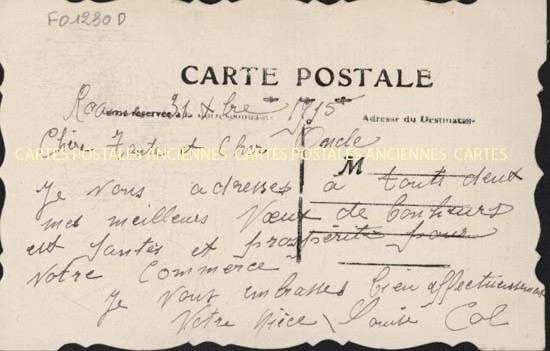 FO1230D
CARTE POSTALE
31 Xbre 1915
Adresse du Destinataire
Chère Tante et Cher Oncle
CARTES POSTALES ANCIENNES CARTES POSTALES ANCIENNES CARTES
M
Je vous adresses à touts deux
mes meilleurs Vœux de bonheurs
est santés et prospérité pour
votre Commerce
Je vous embrasses bien affectueusement
Votre nièce Louise Col